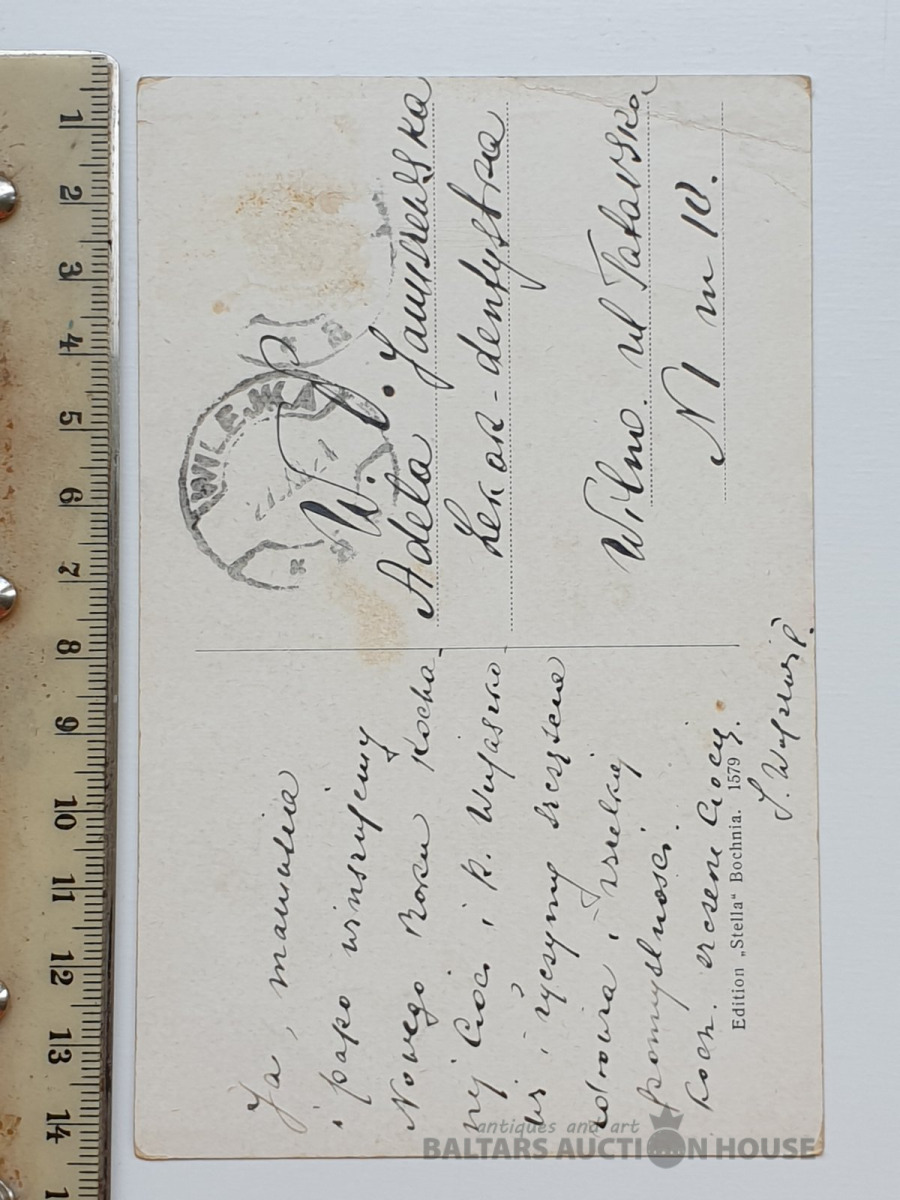 Ja, mamusia
i papo winszujemy
Nowego Roku kocha-
nej Cioci i k. Wujaszko-
wi i życzymy szczęścia
zdrowia i wszelkiej
pomyślności.
Koch. ercsene Ciocię.
WILEJKA
W. P.
Adela Januszewska
Lekarz-dentystka
Wilno. ul Tatarska
N 1 m 10.
Edition „Stella“ Bochnia. 1579
antiques and art
BALTARS AUCTION HOUSE
1
2
3
4
5
6
7
8
9
10
11
12
13
14